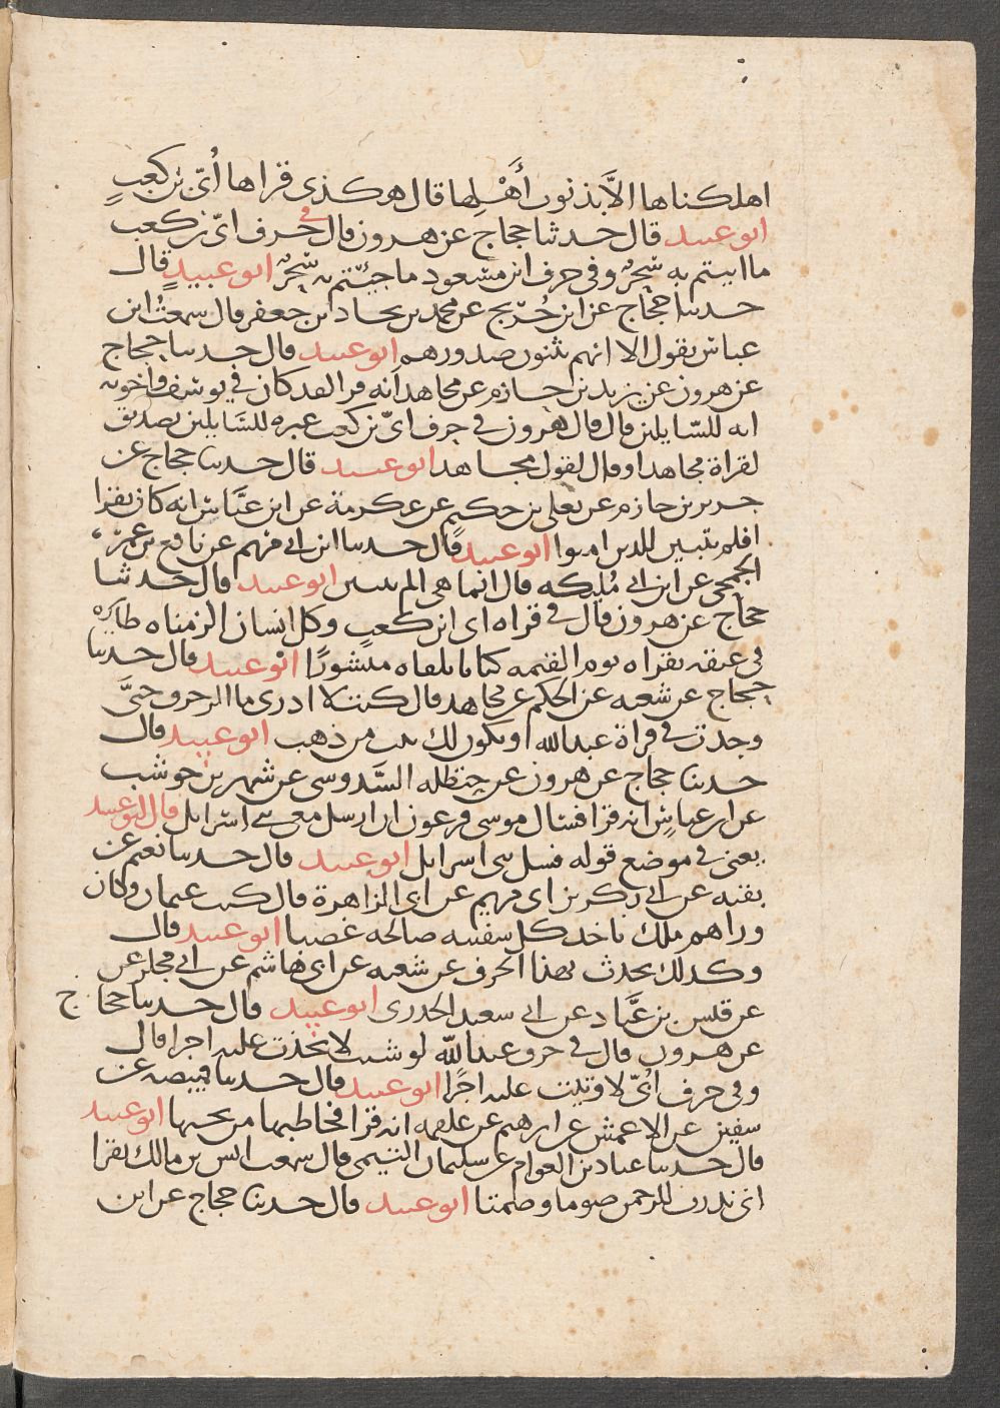 اهلكناها الا بذنوب أهْلِها قال هو كذى قراها أُبىّ بن كعبٍ
ابو عبيد قال حدثنا حجاج عن هرون قال في حرف ابىّ بن كعب
ما اتيتم به سِحْرٌ وفى حرف ابن مسعود ما جئتم به سِحْرٌ ابو عبيدٍ قال
حدثنا حجاج عن ابن جُرَيج عن محمد بن عباد ابن جعفر قال سمعتُ ابن
عباس يقول الا انهم تثنون صدورهم ابو عبيد قال حدثنا حجاج
عن هرون عن يزيد بن حازم عن مجاهد انه قرا لقد كان في يوسف واخوته
ايه للسّايلين قال قال هرون في حرف ابىّ بن كعب عبره للسَّايلين تصديق
لقراة مجاهد او قال لقول مجاهد ابو عبيد قال حدثنا حجاج عن
جرير بن حازم عن يعلى بن حكيم عن عكرمة عن ابن عبَّاس انه كان يقرا
افلم يتبين للذين امنوا ابو عبيد قال حدثنا ابن ابى مريم عن نافع بن عمر
الجمحى عن ابن ابى مُليكه قال انما هى الم يتبين ابو عبيد قال حدثنا
حجاج عن هرون قال في قراه ابى ابن كعبٍ وكل انسان الزمناه طايره
في عنقه يقراه يوم القيمه كتابا يلقاه منشورًا ابو عبيد قال حدثنا
حجاج عن شعبه عن الحكم عن مجاهد قال كنت لا ادرى ما الزخرف حتَّى
وجدت في قراة عبد الله او يكون لك بيت من ذهب ابو عبيد قال
حدثنا حجاج عن هرون عن حنظله السَّدوسى عن شهر بن حوشب
عن ابن عباسٍ انه قرا فسال موسى فرعون ان ارسل معى بنى اسرايل قال ابو عبيد
يعنى في موضع قوله فسل بنى اسرايل ابو عبيد قال حدثنا نعيم عن
بقيه عن ابى بكر بن ابى مريم عن ابى الزاهرة قال كتب عثمان وكان
وراهم ملك ياخذ كل سفينه صالحه غصبا ابو عبيد قال
وكذلك يحدث بهذا الحرف عن شعبه عن ابى هاشم عن ابى مجلز عن
عن قيس بن عَبَّاد عن ابى سعيد الخدرى ابو عبيد قال حدثنا حجاج
عن هرون قال في حرف عبد اللّه لو شيت لاتخذت عليه اجرا قال
وفى حرف أبىّ لاوتيت عليه اجرًا ابو عبيد قال حدثنا قبيصه عن
سفين عن الاعمش عن ابرهيم عن علقمه انه قرا فخاطبها من تحتها ابو عبيد
قال حدثنا عباد بن العوام عن سليمان التيمى قال سمعت انس بن مالك يقرا
انى نذرت للرحمن صوما وصمتا ابو عبيد قال حدثنا حجاج عن ابن